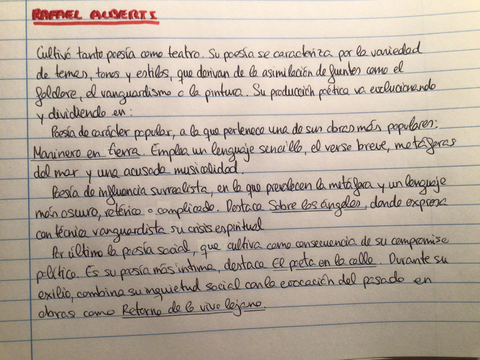 RAFAEL ALBERTI
Cultivó tanto poesía como teatro. Su poesía se caracteriza por la variedad
de temas, tonos y estilos, que derivan de la asimilación de fuentes como el
folclore, el vanguardismo o la pintura. Su producción poética va evolucionando
y dividiendo en:
Poesía de carácter popular, a la que pertenece una de sus obras más populares:
Marinero en tierra. Emplea un lenguaje sencillo, el verso breve, metáforas
del mar y una acusada musicalidad.
Poesía de influencia surrealista, en la que prevalecen la metáfora y un lenguaje
más oscuro, retórico o complicado. Destaca Sobre los ángeles, donde expresa
con técnica vanguardista su crisis espiritual
Por último la poesía social, que cultiva como consecuencia de su compromiso
político. Es su poesía más íntima, destaca El poeta en la calle. Durante su
exilio, combina su inquietud social con la evocación del pasado en
obras como Retorno de lo vivo lejano.